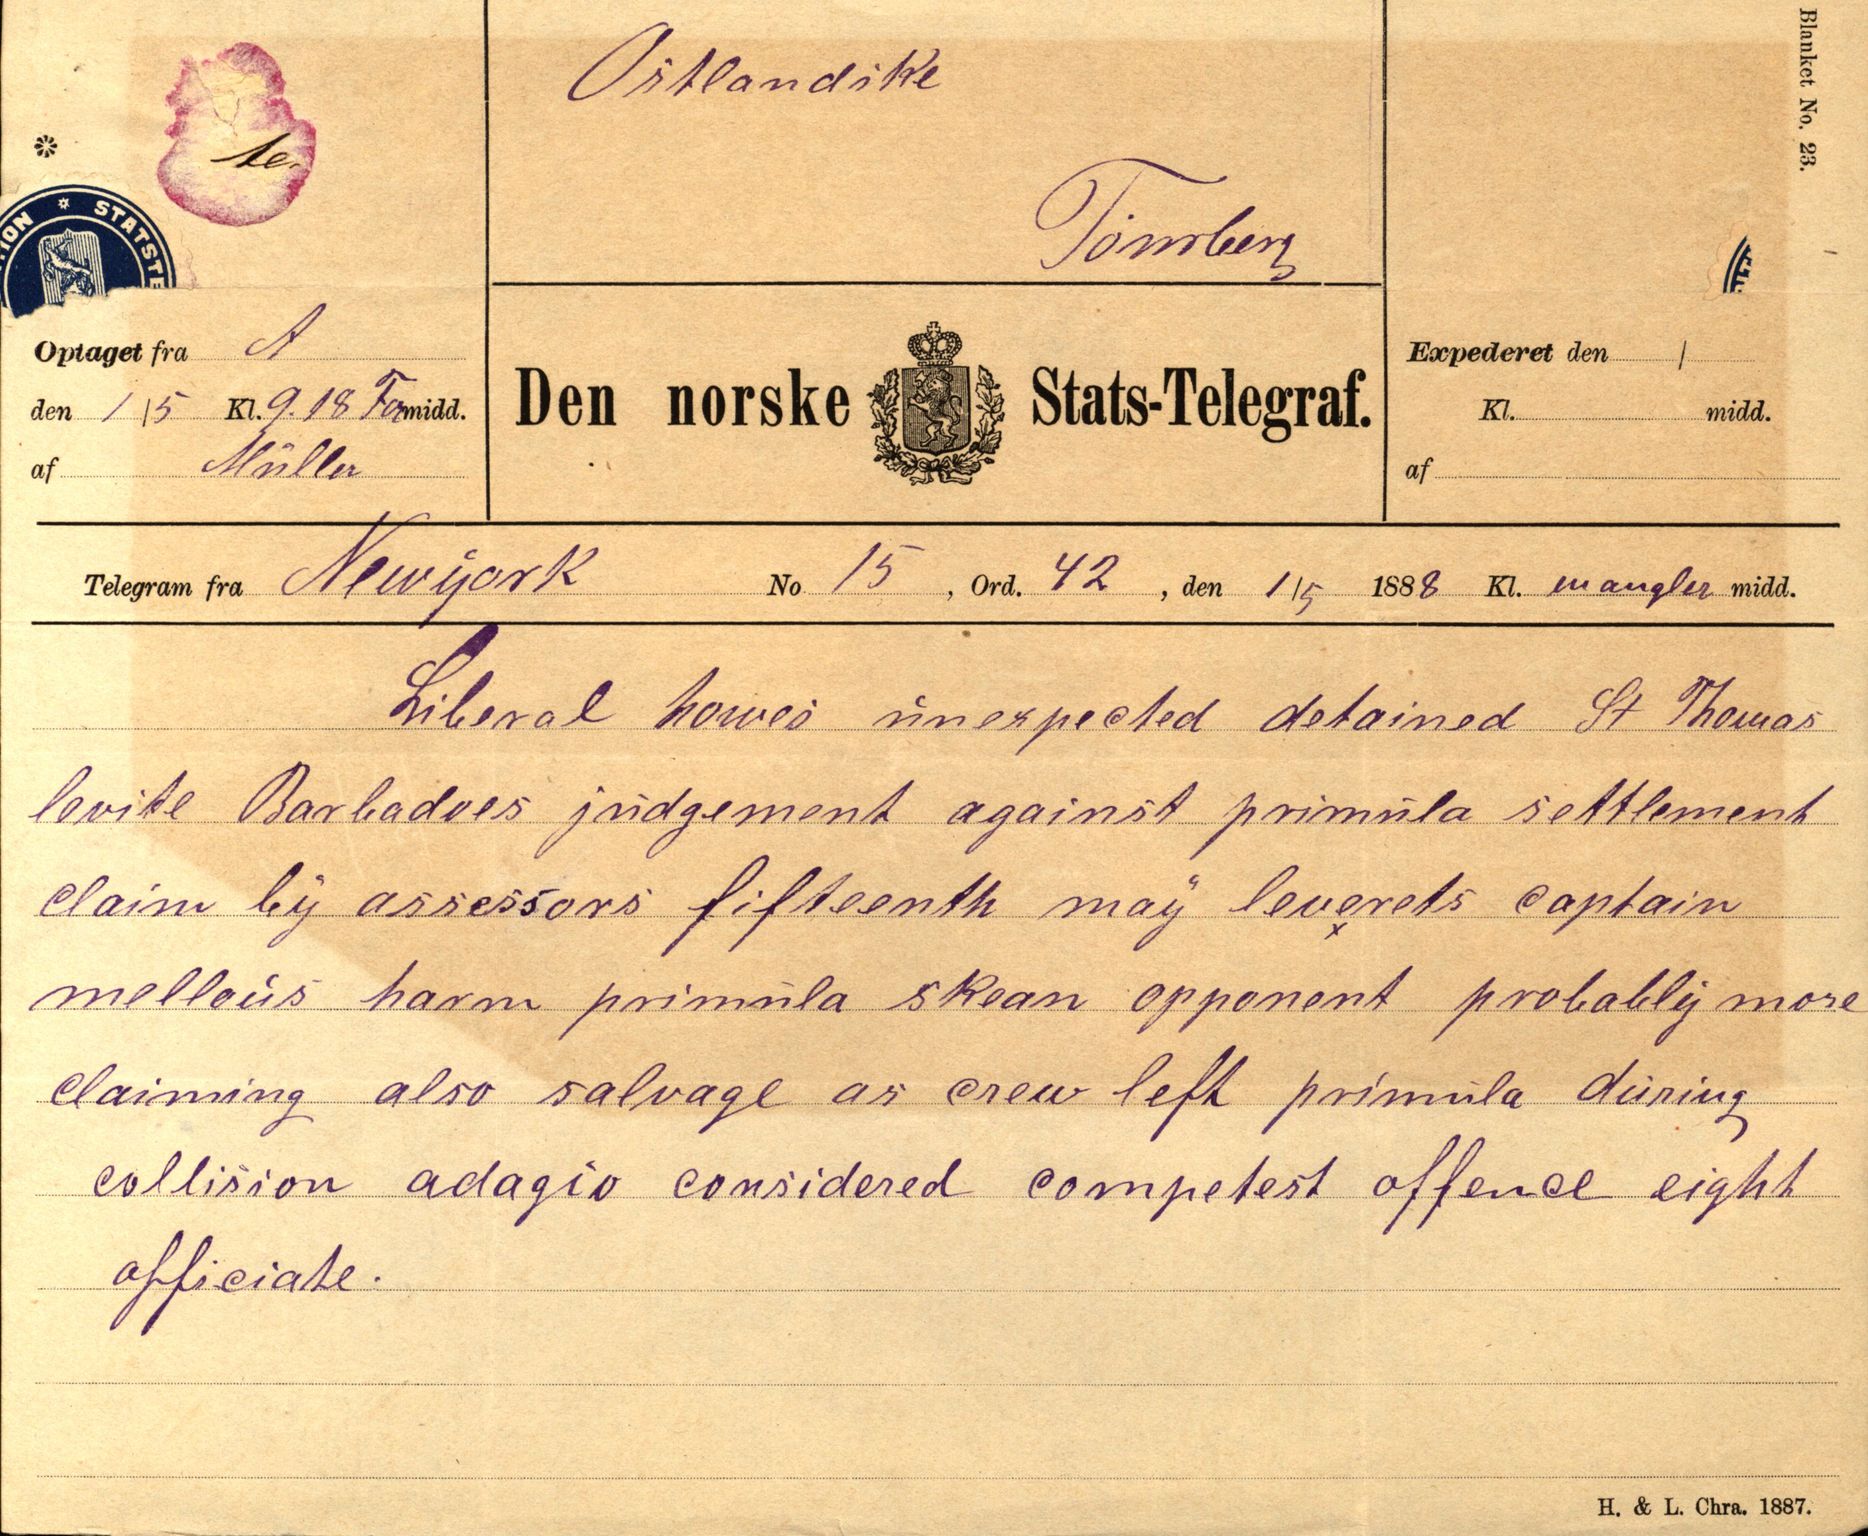 Blanket No. 23.
Ostlandike
te
Tönsberg
STATSTE
Optaget fra A
den 1/5 Kl. 9.18 Formidd.
af Müller
Den norske Stats-Telegraf.
Expederet den /
Kl. midd.
af
Telegram fra Newyork No 15, Ord. 42, den 1/5 1888 Kl. mangler midd.
Liberal howes unexpected detained St Thomas
levite Barbadoes judgement against primula settlement
claim by assessors fifteenth may leverets captain
mellous harm primula skean opponent probably more
claiming also salvage as crew left primula during
collision adagio considered competest offence eight
officiate.
H. & L. Chra. 1887.